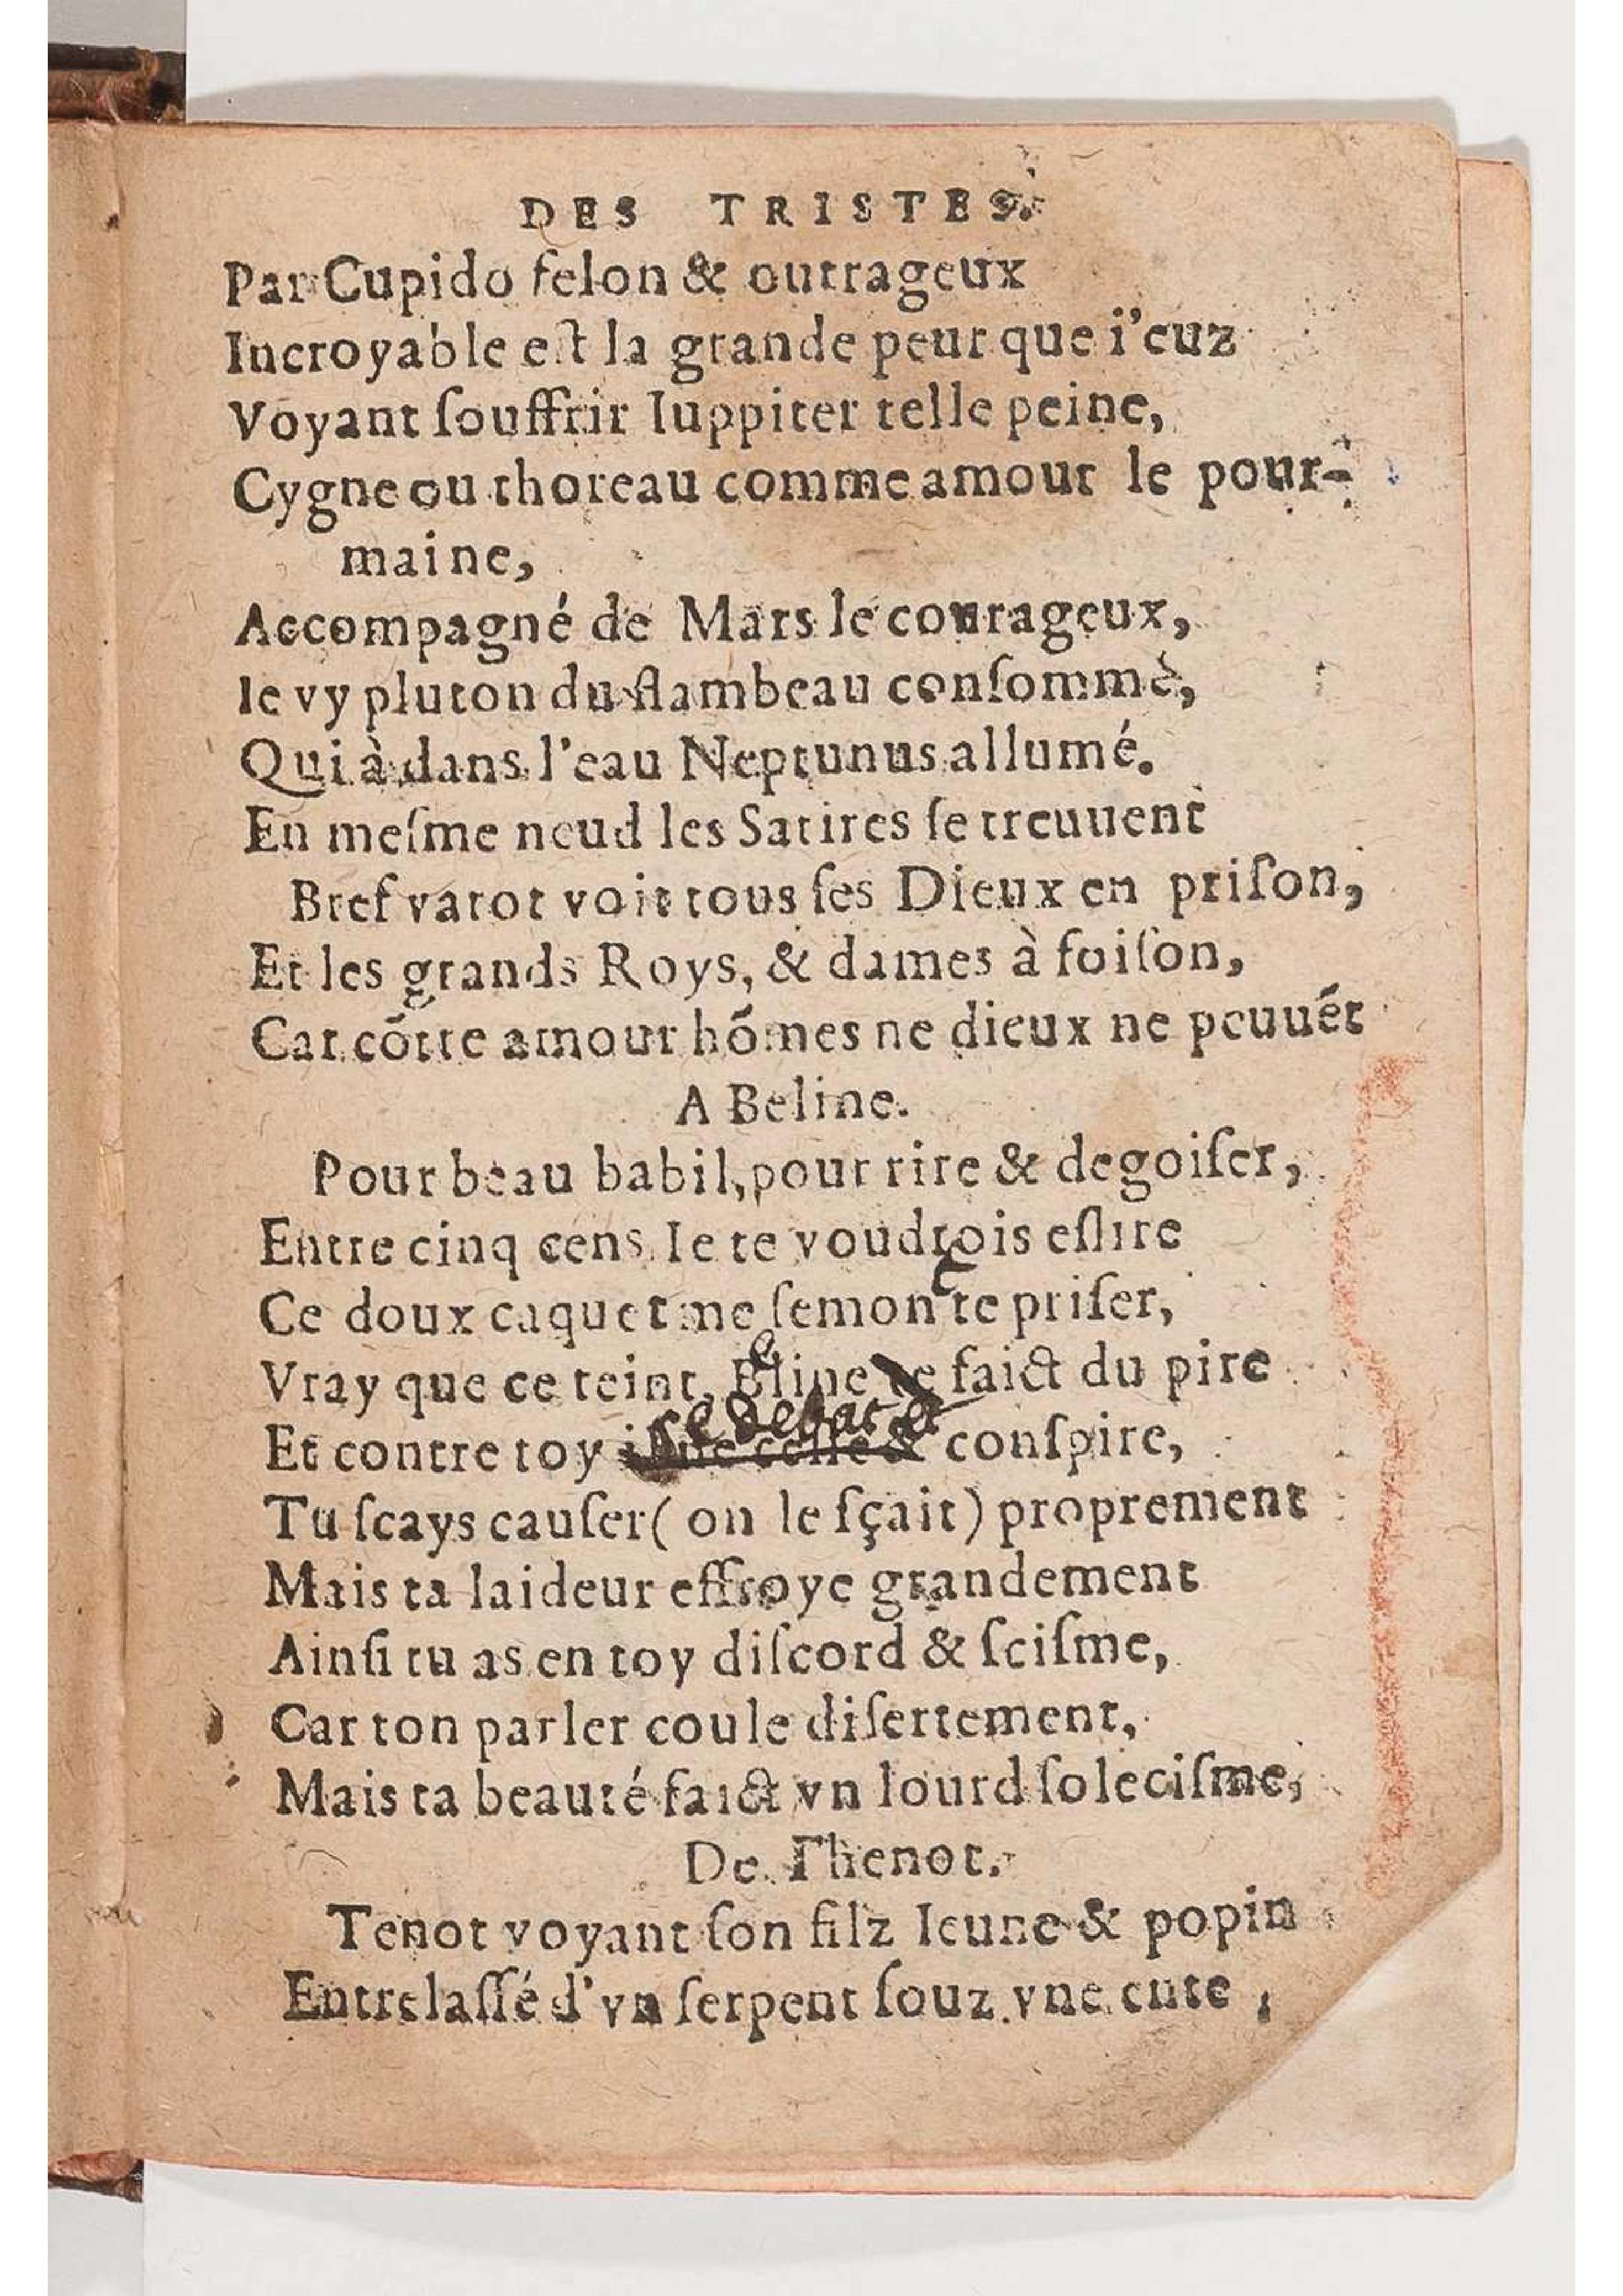 DES TRISTES.
Par Cupido felon & outrageux
Incroyable eſt la grande peur que i'euz
Voyant ſouffrir Iuppiter telle peine,
Cygne ou thoreau comme amour le pour-
maine,
Accompagné de Mars le courageux,
Ie vy pluton du flambeau conſommè,
Qui à dans l'eau Neptunus allumé.
En meſme neud les Satires ſe treuuent
Bref varot voit tous ſes Dieux en priſon,
Et les grands Roys, & dames à foiſon,
Car cõtre amour hõmes ne dieux ne peuuẽt
A Beline.
Pour beau babil, pour rire & degoiſer,
Entre cinq cens Ie te voudrois eſlire
Ce doux caquet me ſemont te priſer,
Vray que ce teint, Beline faict du pire
Et contre toy ſe debat & conſpire,
Tu ſcays cauſer (on le ſçait) proprement
Mais ta laideur effroye grandement
Ainſi tu as en toy diſcord & ſciſme,
Car ton parler coule diſertement,
Mais ta beauté faict vn lourd ſoleciſme,
De Thenot.
Tenot voyant ſon filz Ieune & popin
Entrelaſſé d'vn ſerpent ſouz vne cute,